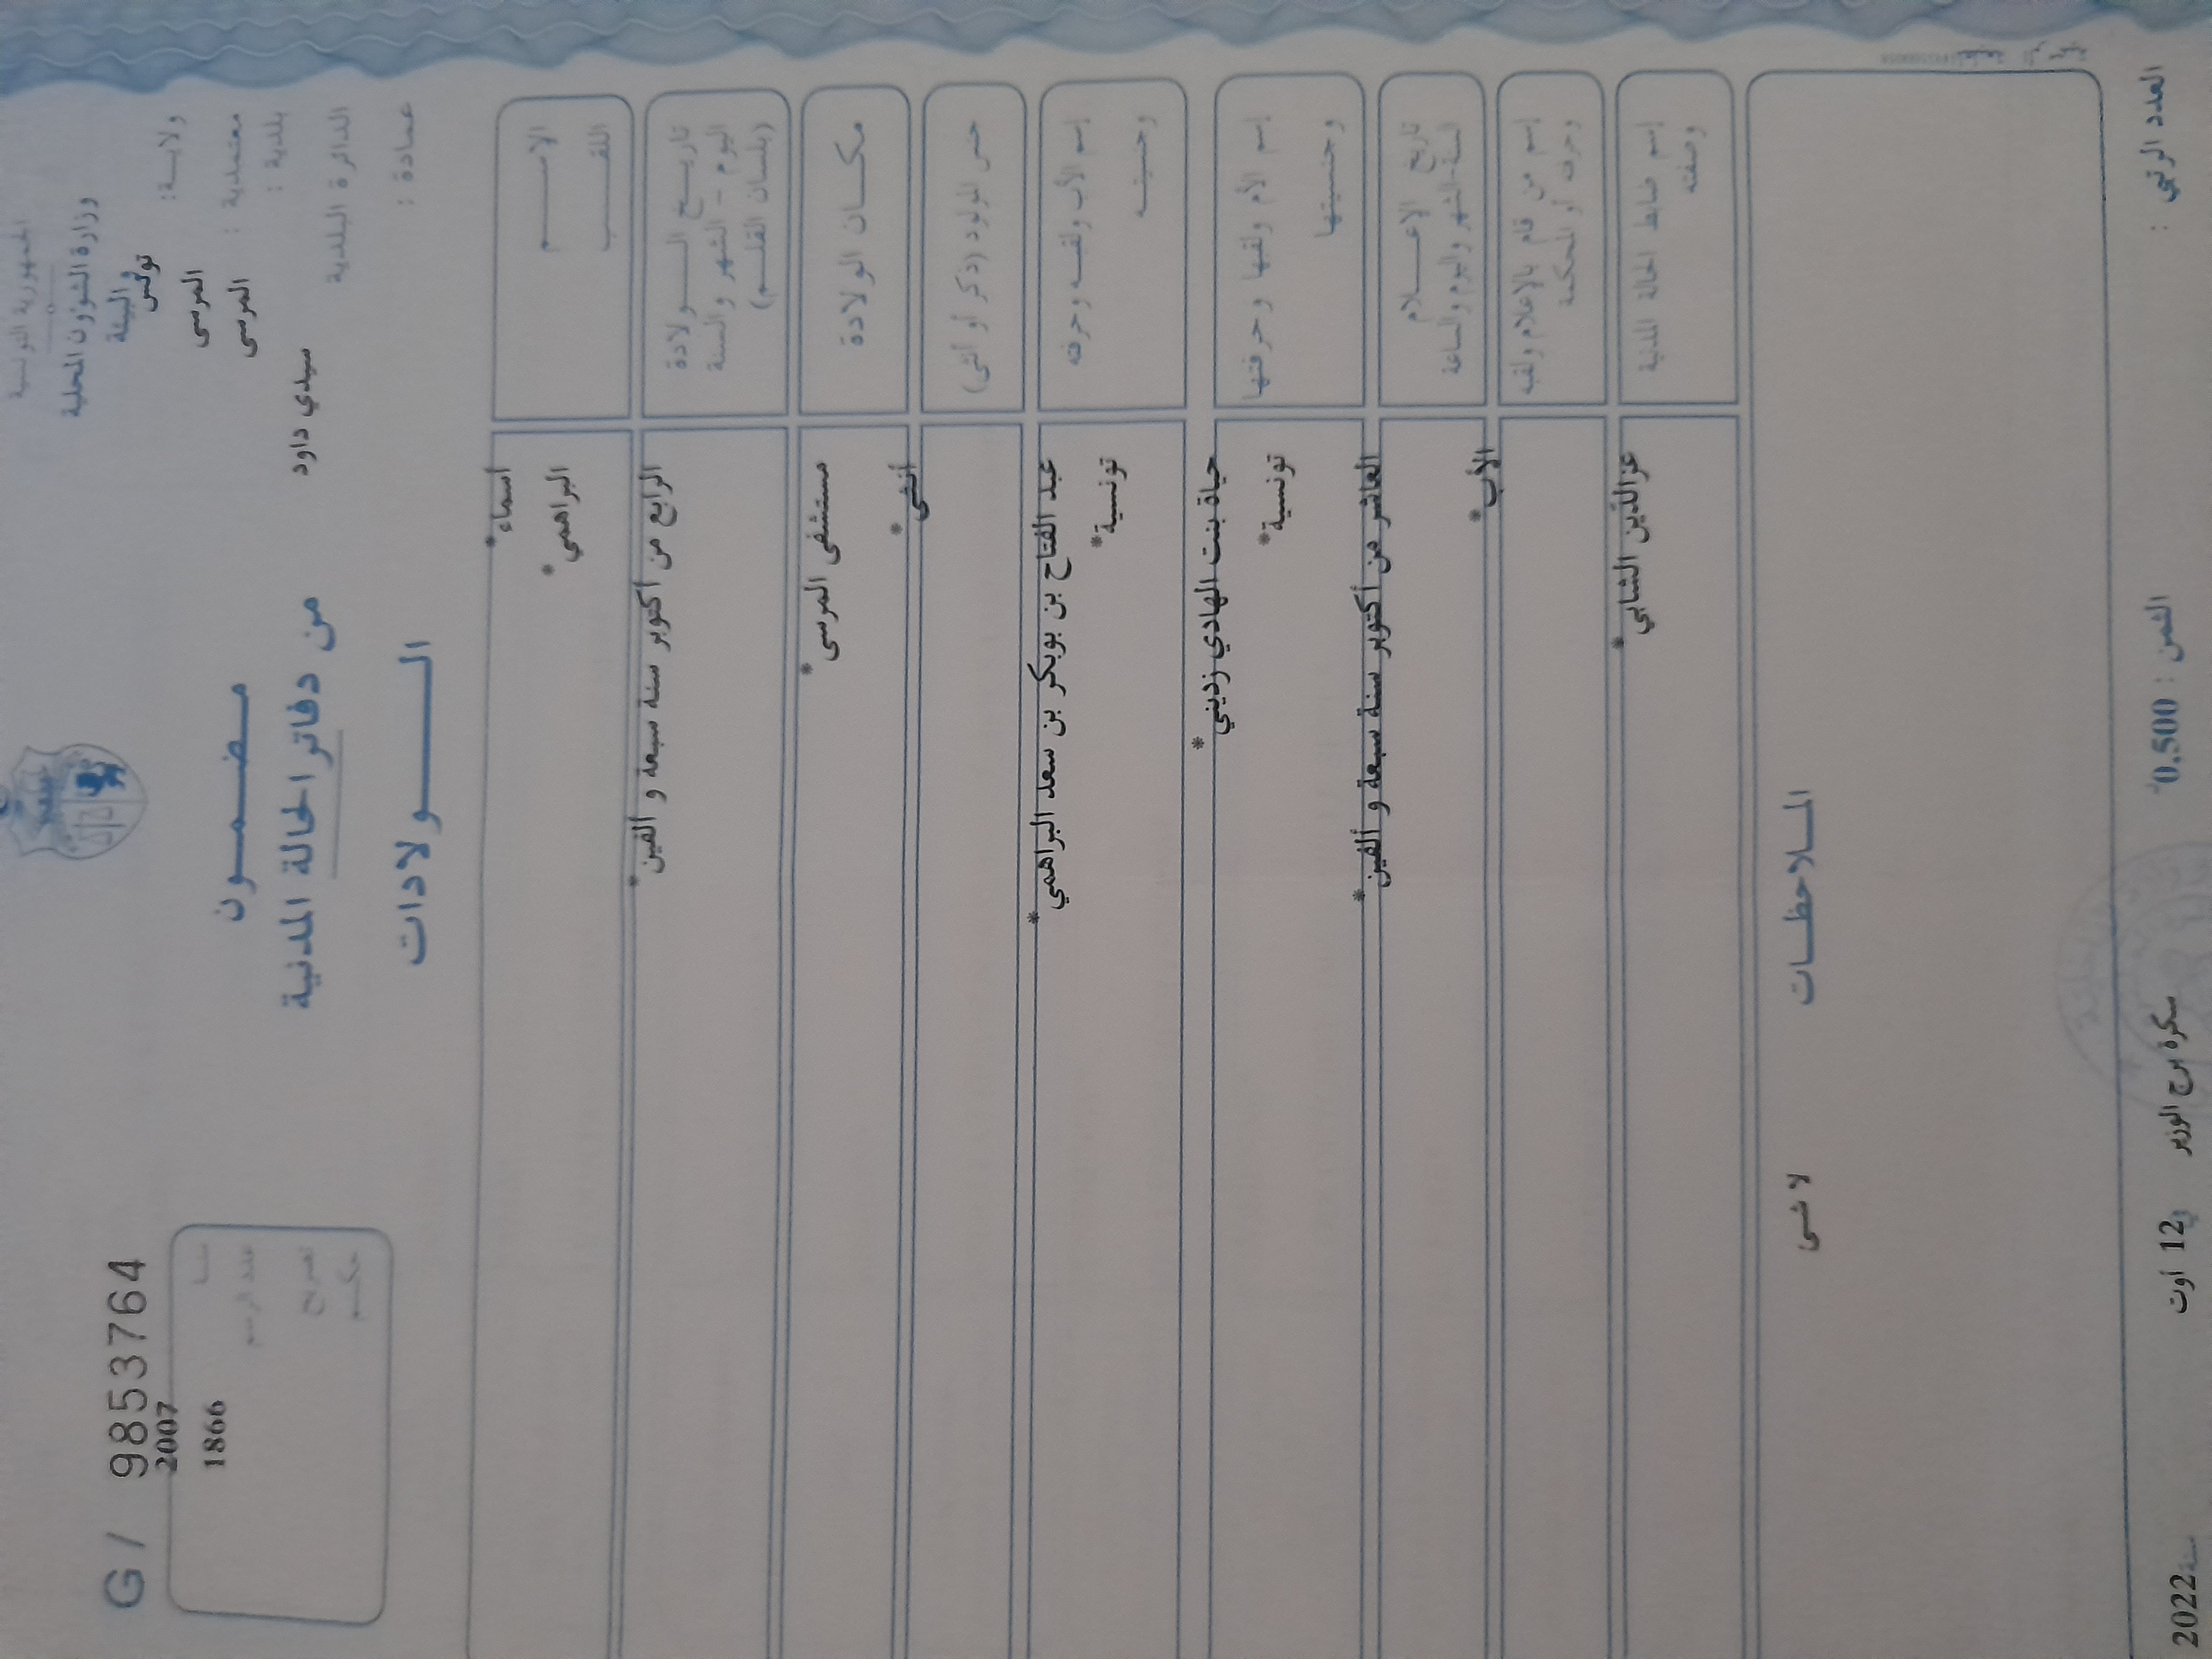 الجمهورية التونسية
وزارة الشؤون المحلية
والبيئة
ولاية: تونس
معتمدية : المرسى
بلدية : المرسى
الدائرة البلدية سيدي داود
عمادة :
مضمون
من دفاتر الحالة المدنية
الولادات
G / 9853764
سنة 2007
عدد الرسم 1866
تصريح
حكم
الاسم أسماء*
اللقب البراهمي*
تاريخ الولادة
اليوم - الشهر والسنة
(بلسان القلم)
الرابع من أكتوبر سنة سبعة و ألفين*
مكان الولادة مستشفى المرسى*
جنس المولود (ذكر أو أنثى) أنثى*
إسم الأب ولقبه وحرفته عبد الفتاح بن بوبكر بن سعد البراهمي*
وجنسيته تونسية*
إسم الأم ولقبها وحرفتها حياة بنت الهادي زديني*
وجنسيتها تونسية*
تاريخ الإعلام
السنة-الشهر واليوم والساعة
العاشر من أكتوبر سنة سبعة و ألفين*
إسم من قام بالإعلام ولقبه
وحرفته أو المحكمة
الأب*
إسم ضابط الحالة المدنية
وصفته
عزالدين الشابي*
الملاحظات
لا شى
العدد الرتبي :
الثمن : 0,500
سكرة برج الوزير في 12 أوت سنة 2022